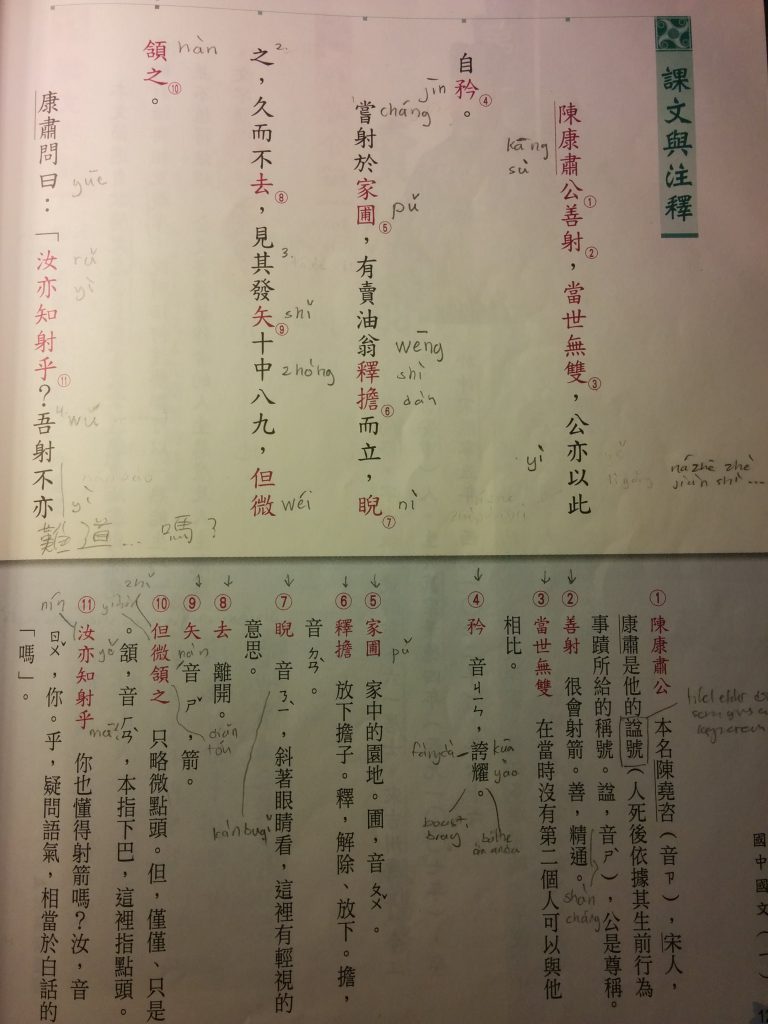 課文與注釋
陳康肅公①善射②，當世無雙③，公亦以此
自矜④。
嘗射於家圃⑤，有賣油翁釋擔⑥而立，睨⑦
之，久而不去⑧，見其發矢⑨十中八九，但微
頷之⑩。
康肅問曰：「汝亦知射乎⑪？吾射不亦
kāng
sù
yì
jīn
cháng
pǔ
wēng
shì
dàn
nì
2.
3.
shǐ
zhòng
wéi
hàn
yuē
rǔ
yì
wú
yì
難道…嗎？
nǎ zhē zhè
jiàn shì ...
①陳康肅公　本名陳堯咨（音ㄗ），宋人，
康肅是他的諡號（人死後依據其生前行為
事蹟所給的稱號。諡，音ㄕˋ），公是尊稱。
②善射　很會射箭。善，精通。
③當世無雙　在當時沒有第二個人可以與他
相比。
④矜　音ㄐㄧㄣ，誇耀。
⑤家圃　家中的園地。圃，音ㄆㄨˇ。
⑥釋擔　放下擔子。釋，解除、放下。擔，
音ㄉㄢˋ。
⑦睨　音ㄋㄧˋ，斜著眼睛看，這裡有輕視的
意思。
⑧去　離開。
⑨矢　音ㄕˇ，箭。
⑩但微頷之　只略微點頭。但，僅僅、只是
。頷，音ㄏㄢˋ，本指下巴，這裡指點頭。
⑪汝亦知射乎　你也懂得射箭嗎？汝，音
ㄖㄨˇ，你。乎，疑問語氣，相當於白話的
「嗎」。
shàn
cháng
kuā
yào
boast,
brag
pǔ
kànbuqǐ
diǎn
tóu
zhǐ
nín
國中國文（一）